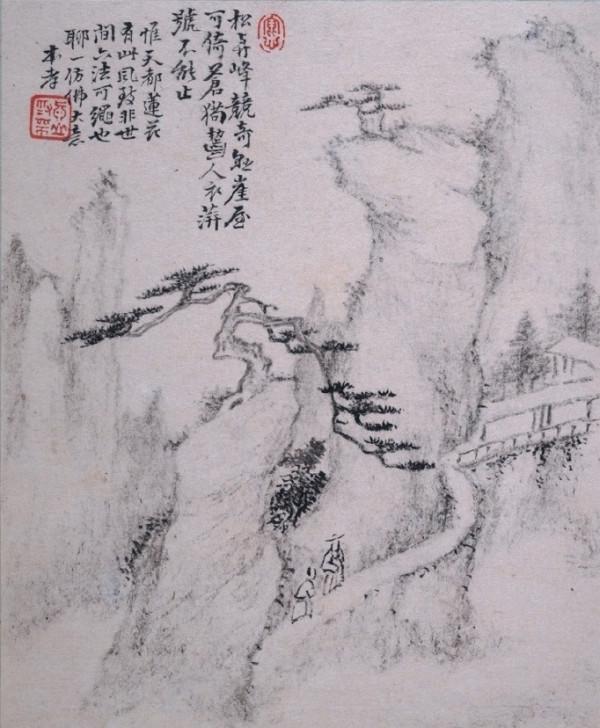 松與峰競奇崖
可倚蒼齧人衣
號不能止
惟天都蓮花
有此風致非世
間六法可繩也
聊一仿佛大意
本孝